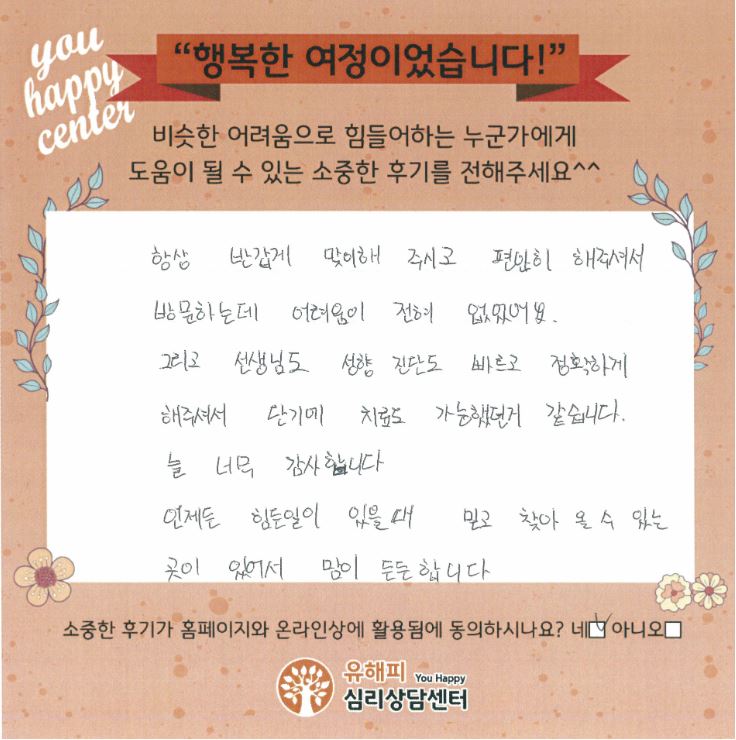 you
happy
center
“행복한 여정이었습니다!”
비슷한 어려움으로 힘들어하는 누군가에게
도움이 될 수 있는 소중한 후기를 전해주세요^^
항상 반갑게 맞이해 주시고 편안히 해주셔서
방문하는데 어려움이 전혀 없었어요.
그리고 선생님도 성향 진단도 빠르고 정확하게
해주셔서 단기에 치료도 가능했던거 같습니다.
늘 너무 감사합니다
언제든 힘든일이 있을때 믿고 찾아 올 수 있는
곳이 있어서 맘이 든든합니다
소중한 후기가 홈페이지와 온라인상에 활용됨에 동의하시나요? 네☑ 아니오☐
유해피 You Happy
심리상담센터